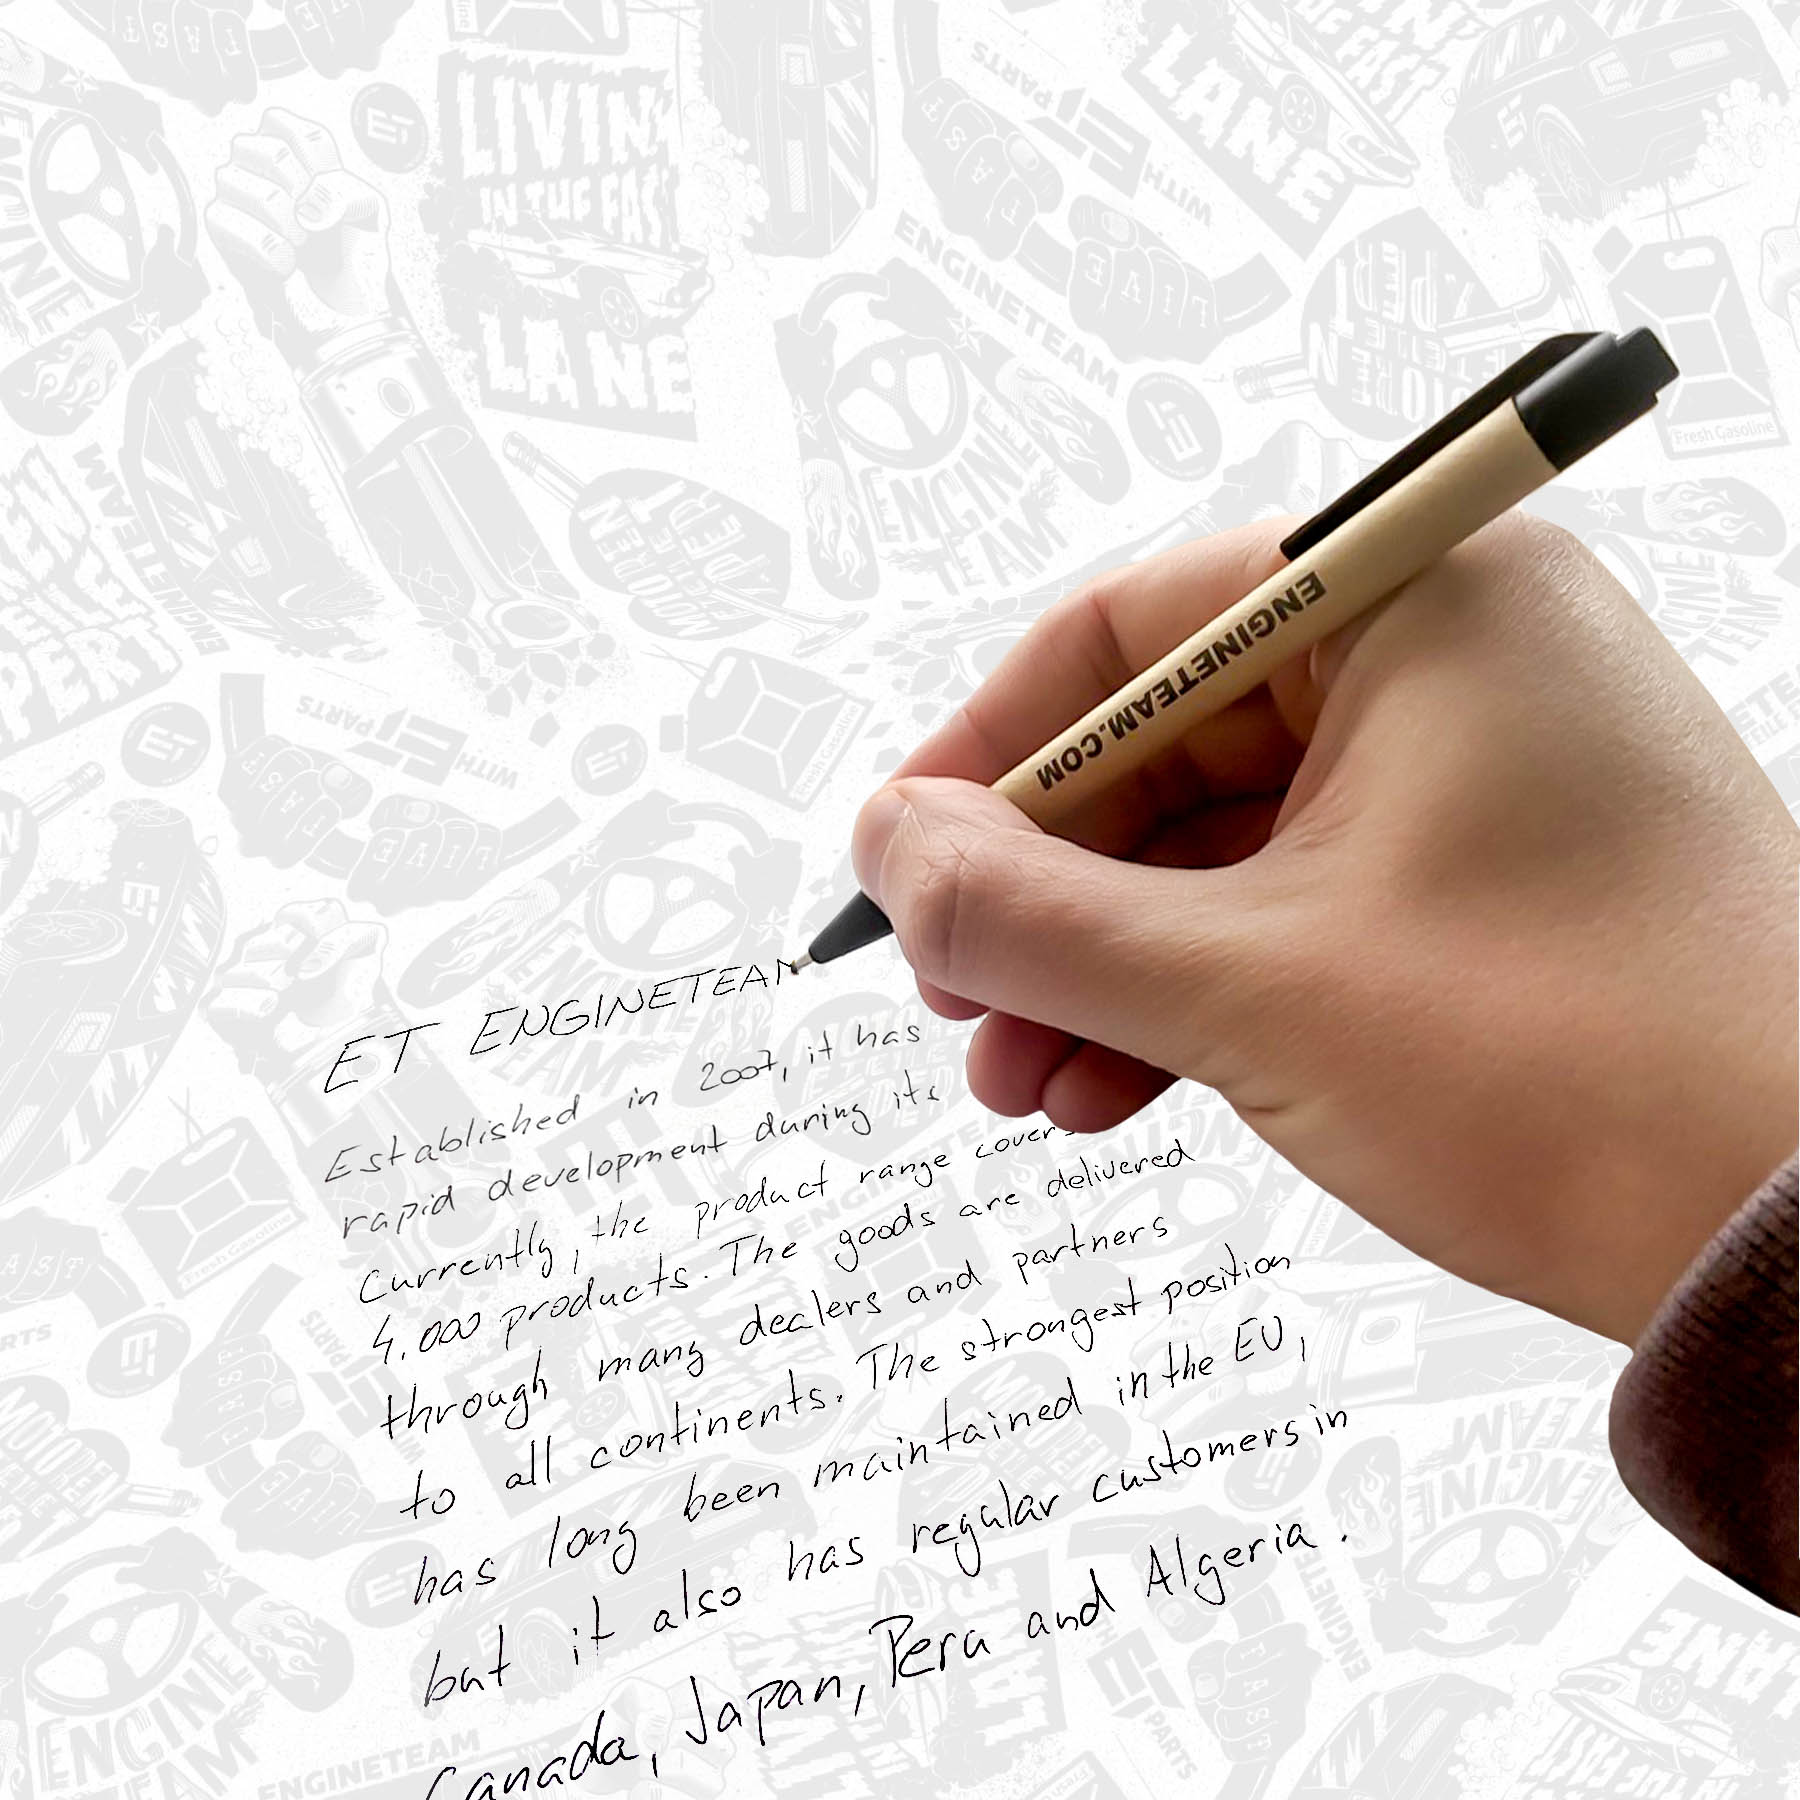 ENGINETEAM.COM
ET ENGINETEAM
Established in 2007, it has
rapid development during its
Currently, the product range covers
4.000 products. The goods are delivered
through many dealers and partners
to all continents. The strongest position
has long been maintained in the EU,
but it also has regular customers in
Canada, Japan, Peru and Algeria.
LIVIN
IN THE FAS
LANE
ENGINETEAM
WITH ET PARTS
Fresh Gasoline
LIVE
FAST